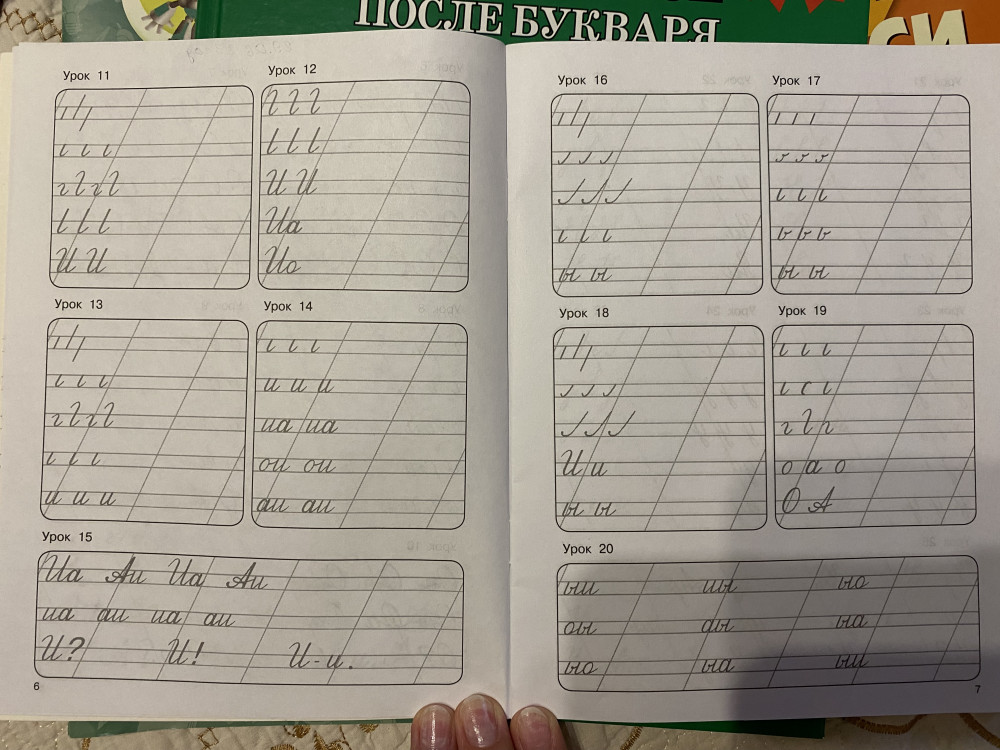 ПОСЛЕ БУКВАРЯ
СИ
Урок 11
И И
Урок 12
И И
Иа
Ио
Урок 13
и и и
Урок 14
и и и
иа иа
ои ои
аи аи
Урок 15
Иа Аи Иа Аи
иа аи иа аи
И? И! И-и.
6
Урок 16
ы ы
Урок 17
ь ь ь
ы ы
Урок 18
И и
ы ы
Урок 19
о а о
О А
Урок 20
ыи иы ыо
оы аы ыа
ыо ыа ыи
7